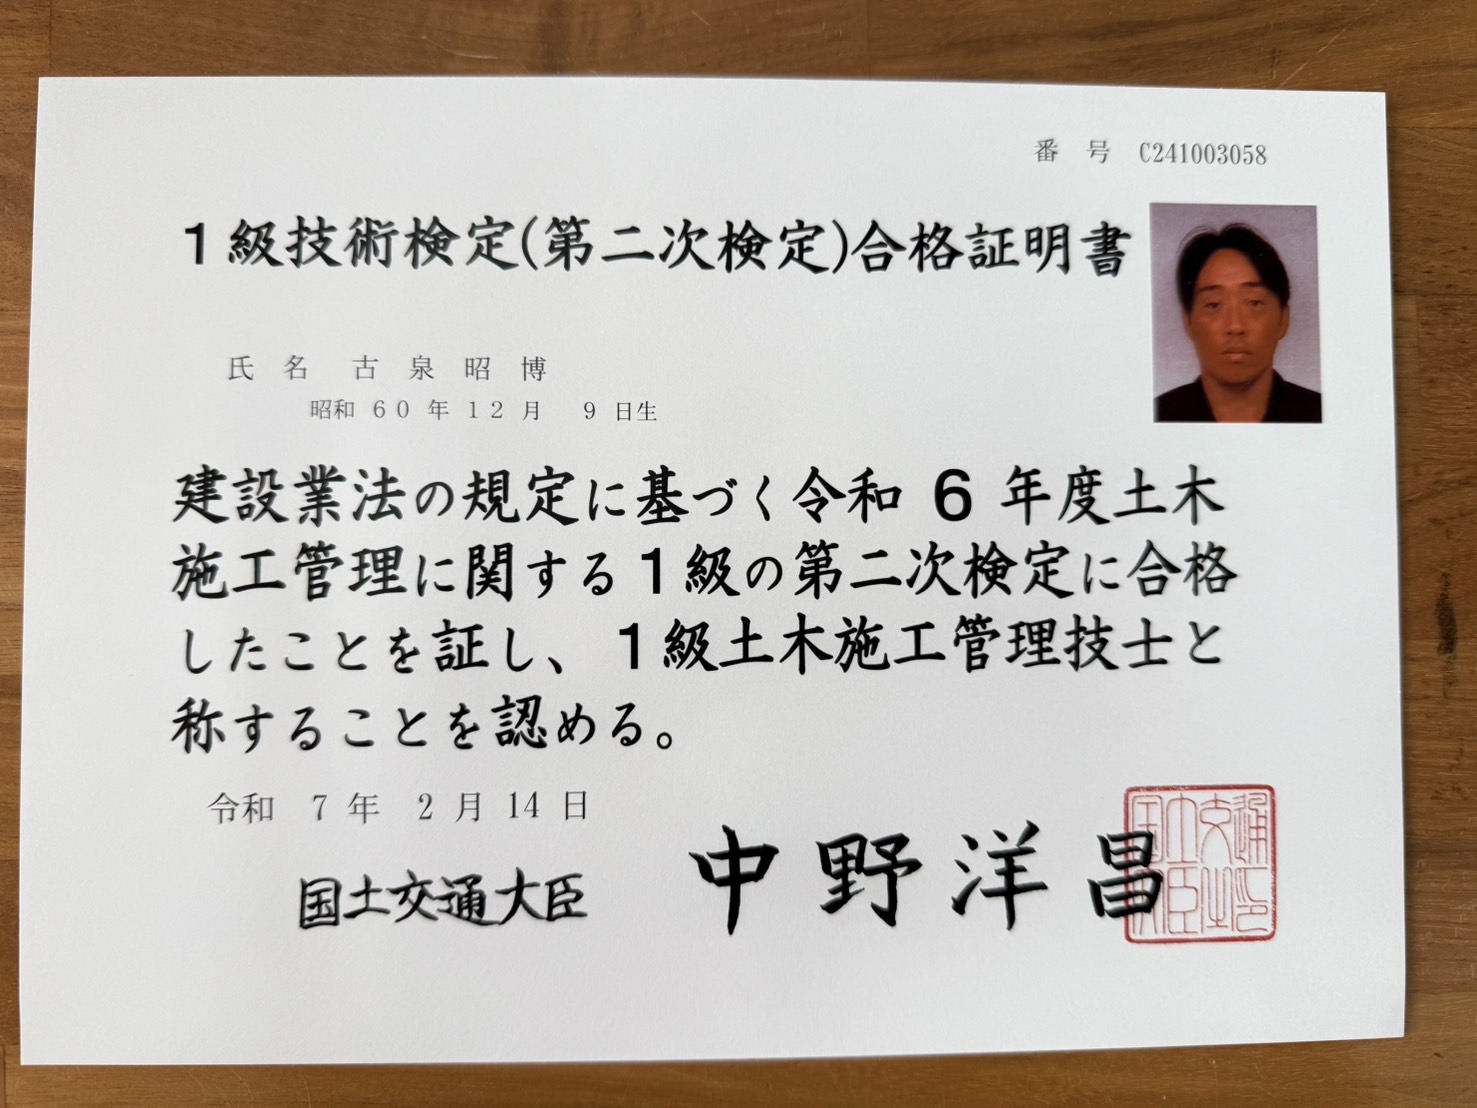 番 号 C241003058
1級技術検定(第二次検定)合格証明書
氏 名 古 泉 昭 博
昭和 60 年 12 月 9 日生
建設業法の規定に基づく令和 6 年度土木
施工管理に関する1級の第二次検定に合格
したことを証し、1級土木施工管理技士と
称することを認める。
令和 7 年 2 月 14 日
国土交通大臣 中 野 洋 昌
国土交通大臣之印